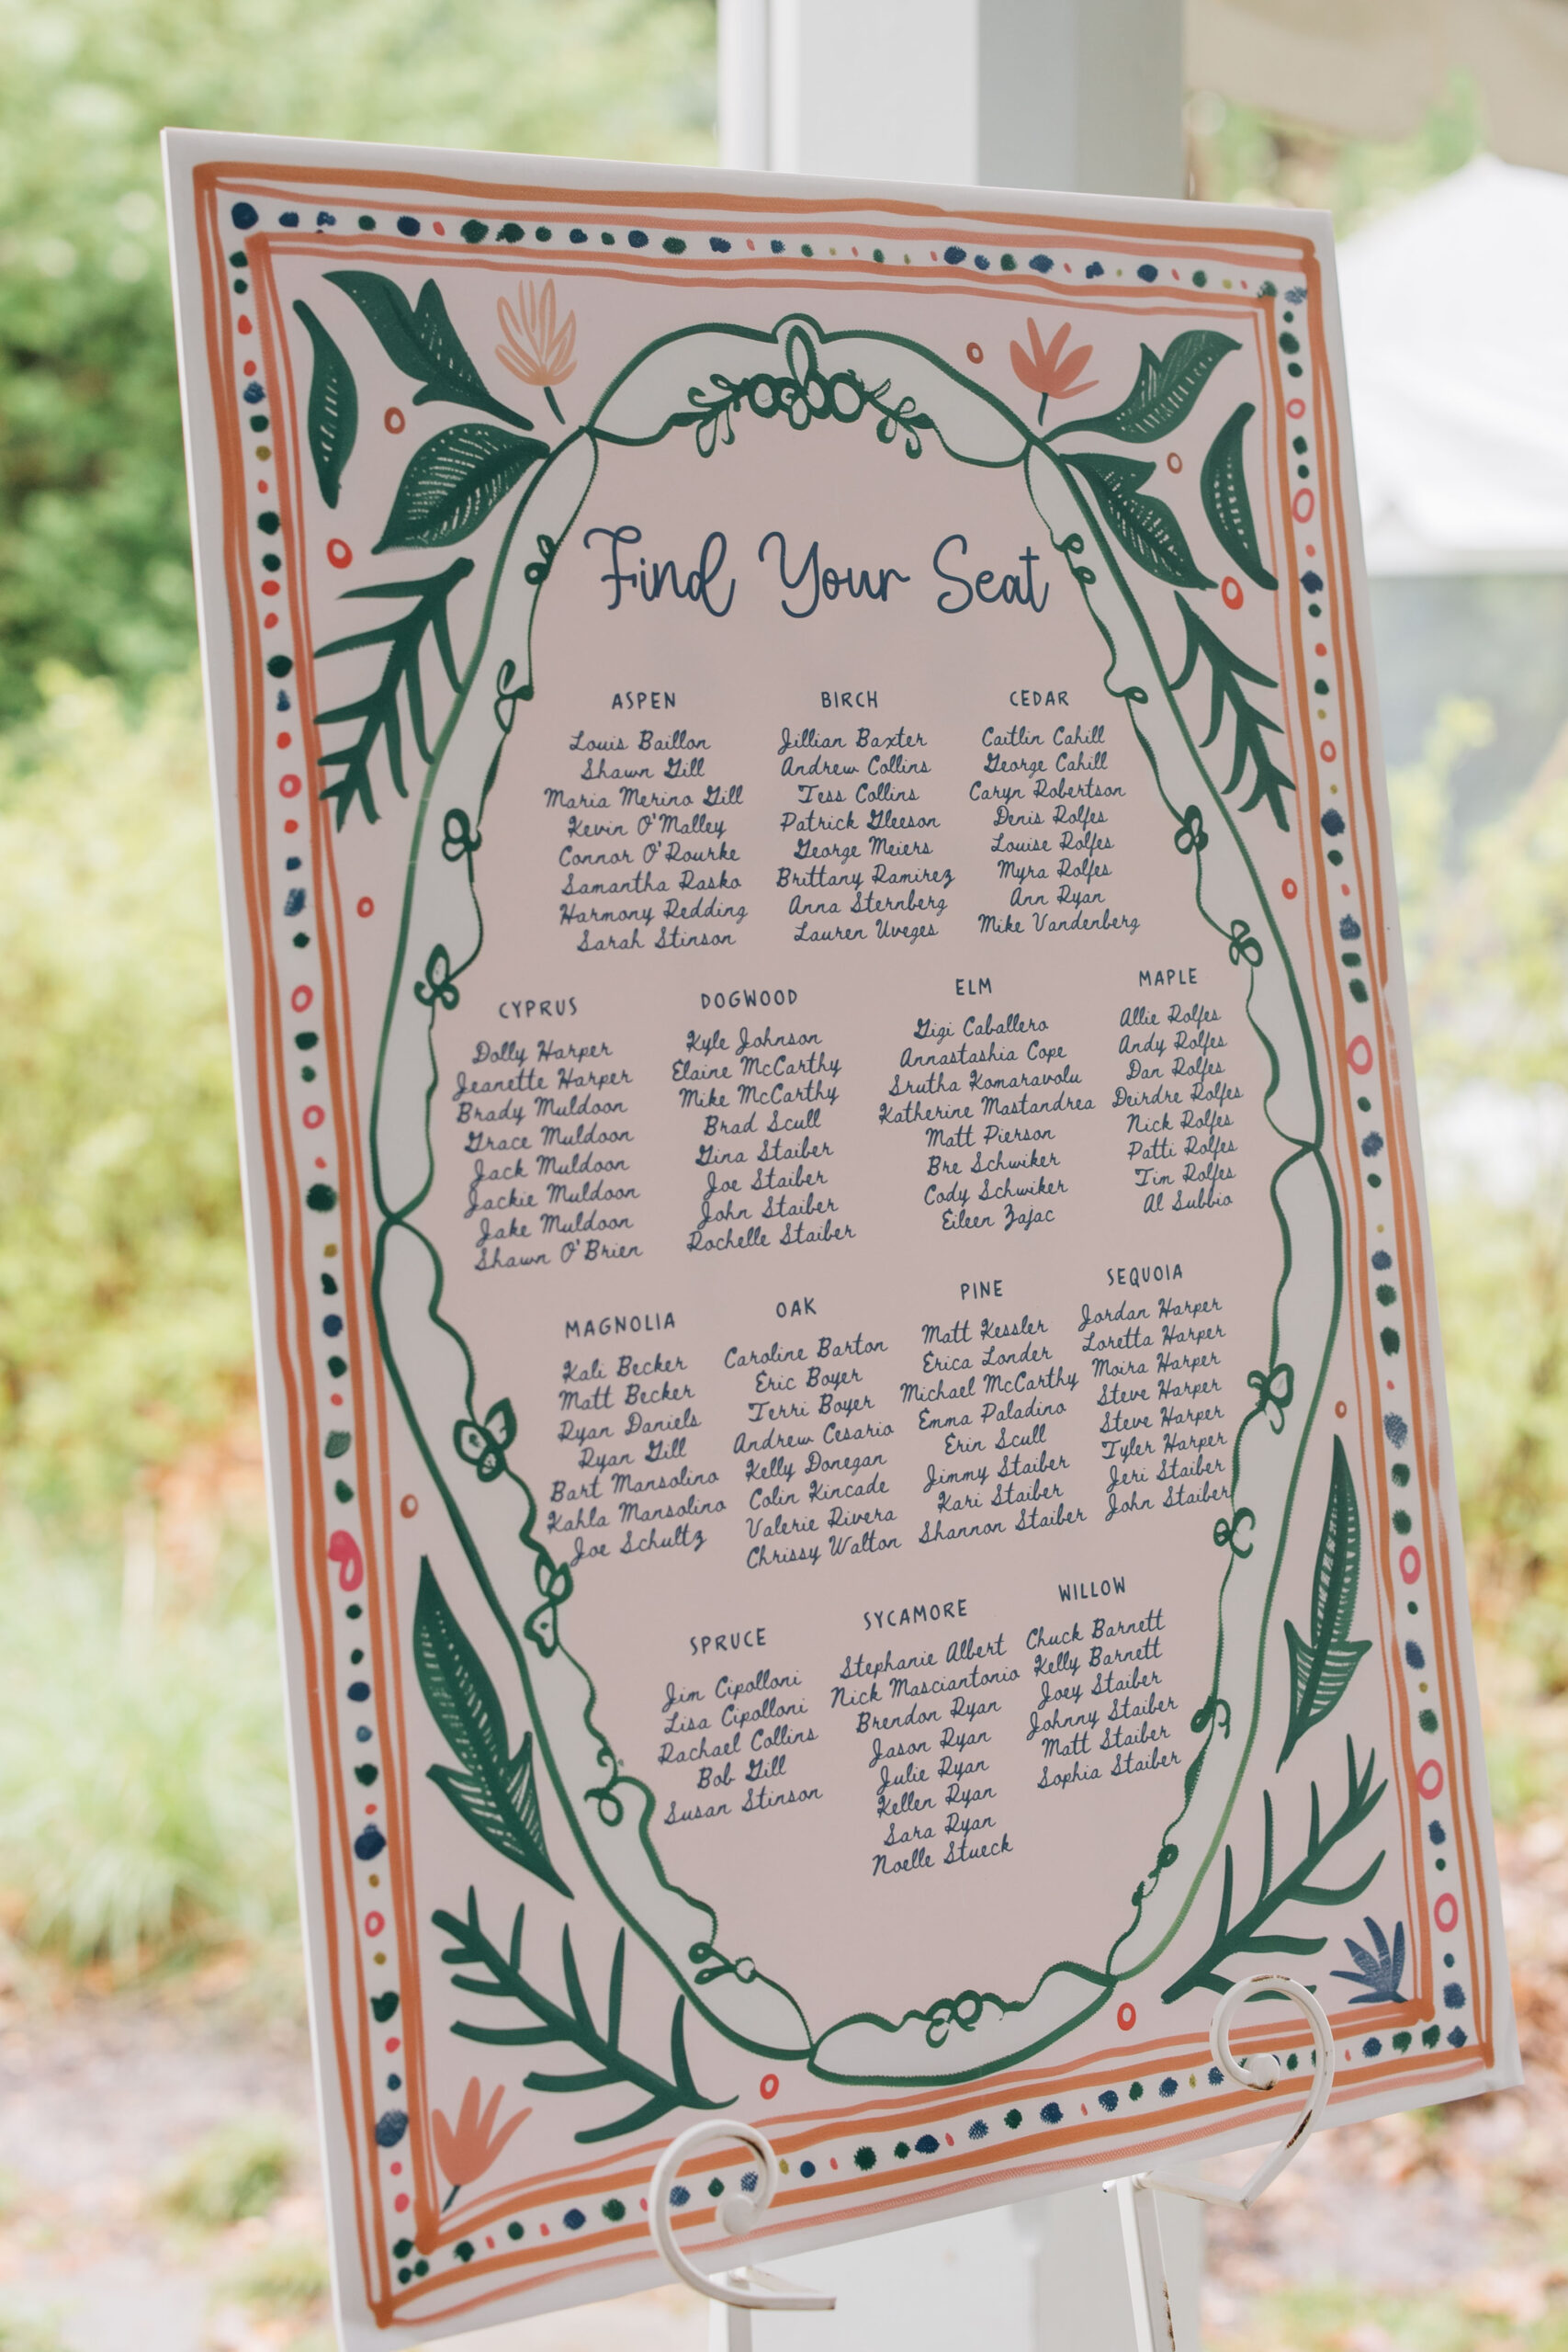 Find Your Seat
ASPEN
Louis Baillon
Shawn Gill
Maria Merino Gill
Kevin O'Malley
Connor O'Rourke
Samantha Rasko
Harmony Redding
Sarah Stinson
BIRCH
Jillian Baxter
Andrew Collins
Tess Collins
Patrick Gleeson
George Meiers
Brittany Ramirez
Anna Sternberg
Lauren Uveges
CEDAR
Caitlin Cahill
George Cahill
Caryn Robertson
Denis Rolfes
Louise Rolfes
Myra Rolfes
Ann Ryan
Mike Vandenberg
CYPRUS
Dolly Harper
Jeanette Harper
Brady Muldoon
Grace Muldoon
Jack Muldoon
Jackie Muldoon
Jake Muldoon
Shawn O'Brien
DOGWOOD
Kyle Johnson
Elaine McCarthy
Mike McCarthy
Brad Scull
Gina Staiber
Joe Staiber
John Staiber
Rochelle Staiber
ELM
Gigi Caballero
Annastashia Cope
Srutha Komaravolu
Katherine Mastandrea
Matt Pierson
Bre Schwiker
Cody Schwiker
Eileen Zajac
MAPLE
Allie Rolfes
Andy Rolfes
Dan Rolfes
Deirdre Rolfes
Nick Rolfes
Patti Rolfes
Tim Rolfes
Al Subbio
MAGNOLIA
Kali Becker
Matt Becker
Ryan Daniels
Ryan Gill
Bart Mansolino
Kahla Mansolino
Joe Schultz
OAK
Caroline Barton
Eric Boyer
Terri Boyer
Andrew Cesario
Kelly Donegan
Colin Kincade
Valerie Rivera
Chrissy Walton
PINE
Matt Kessler
Erica Londer
Michael McCarthy
Emma Paladino
Erin Scull
Jimmy Staiber
Kari Staiber
Shannon Staiber
SEQUOIA
Jordan Harper
Loretta Harper
Moira Harper
Steve Harper
Steve Harper
Tyler Harper
Jeri Staiber
John Staiber
SPRUCE
Jim Cipolloni
Lisa Cipolloni
Rachael Collins
Bob Gill
Susan Stinson
SYCAMORE
Stephanie Albert
Nick Masciantonio
Brendon Ryan
Jason Ryan
Julie Ryan
Kellen Ryan
Sara Ryan
Noelle Stueck
WILLOW
Chuck Barnett
Kelly Barnett
Joey Staiber
Johnny Staiber
Matt Staiber
Sophia Staiber